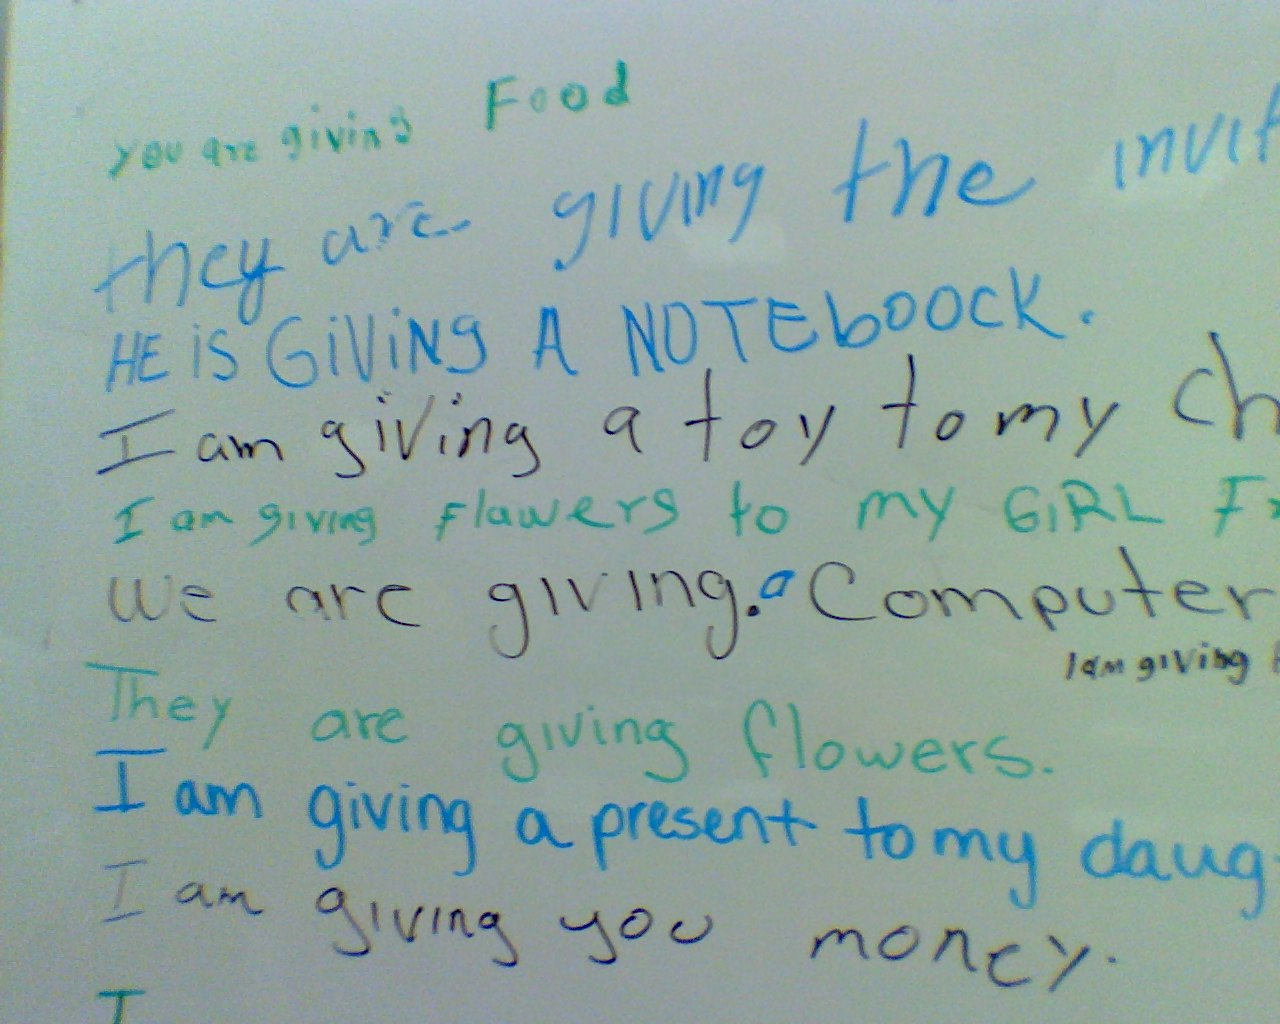 you are giving Food
they are giving the invit
HE iS GiViNG A NOTEbOOCK.
I am giving a toy to my ch
I am giving Flawers to my GiRL Fr
We are giving. a Computer
I am giving
They are giving flowers.
I am giving a present to my daug
I am giving you money.
I